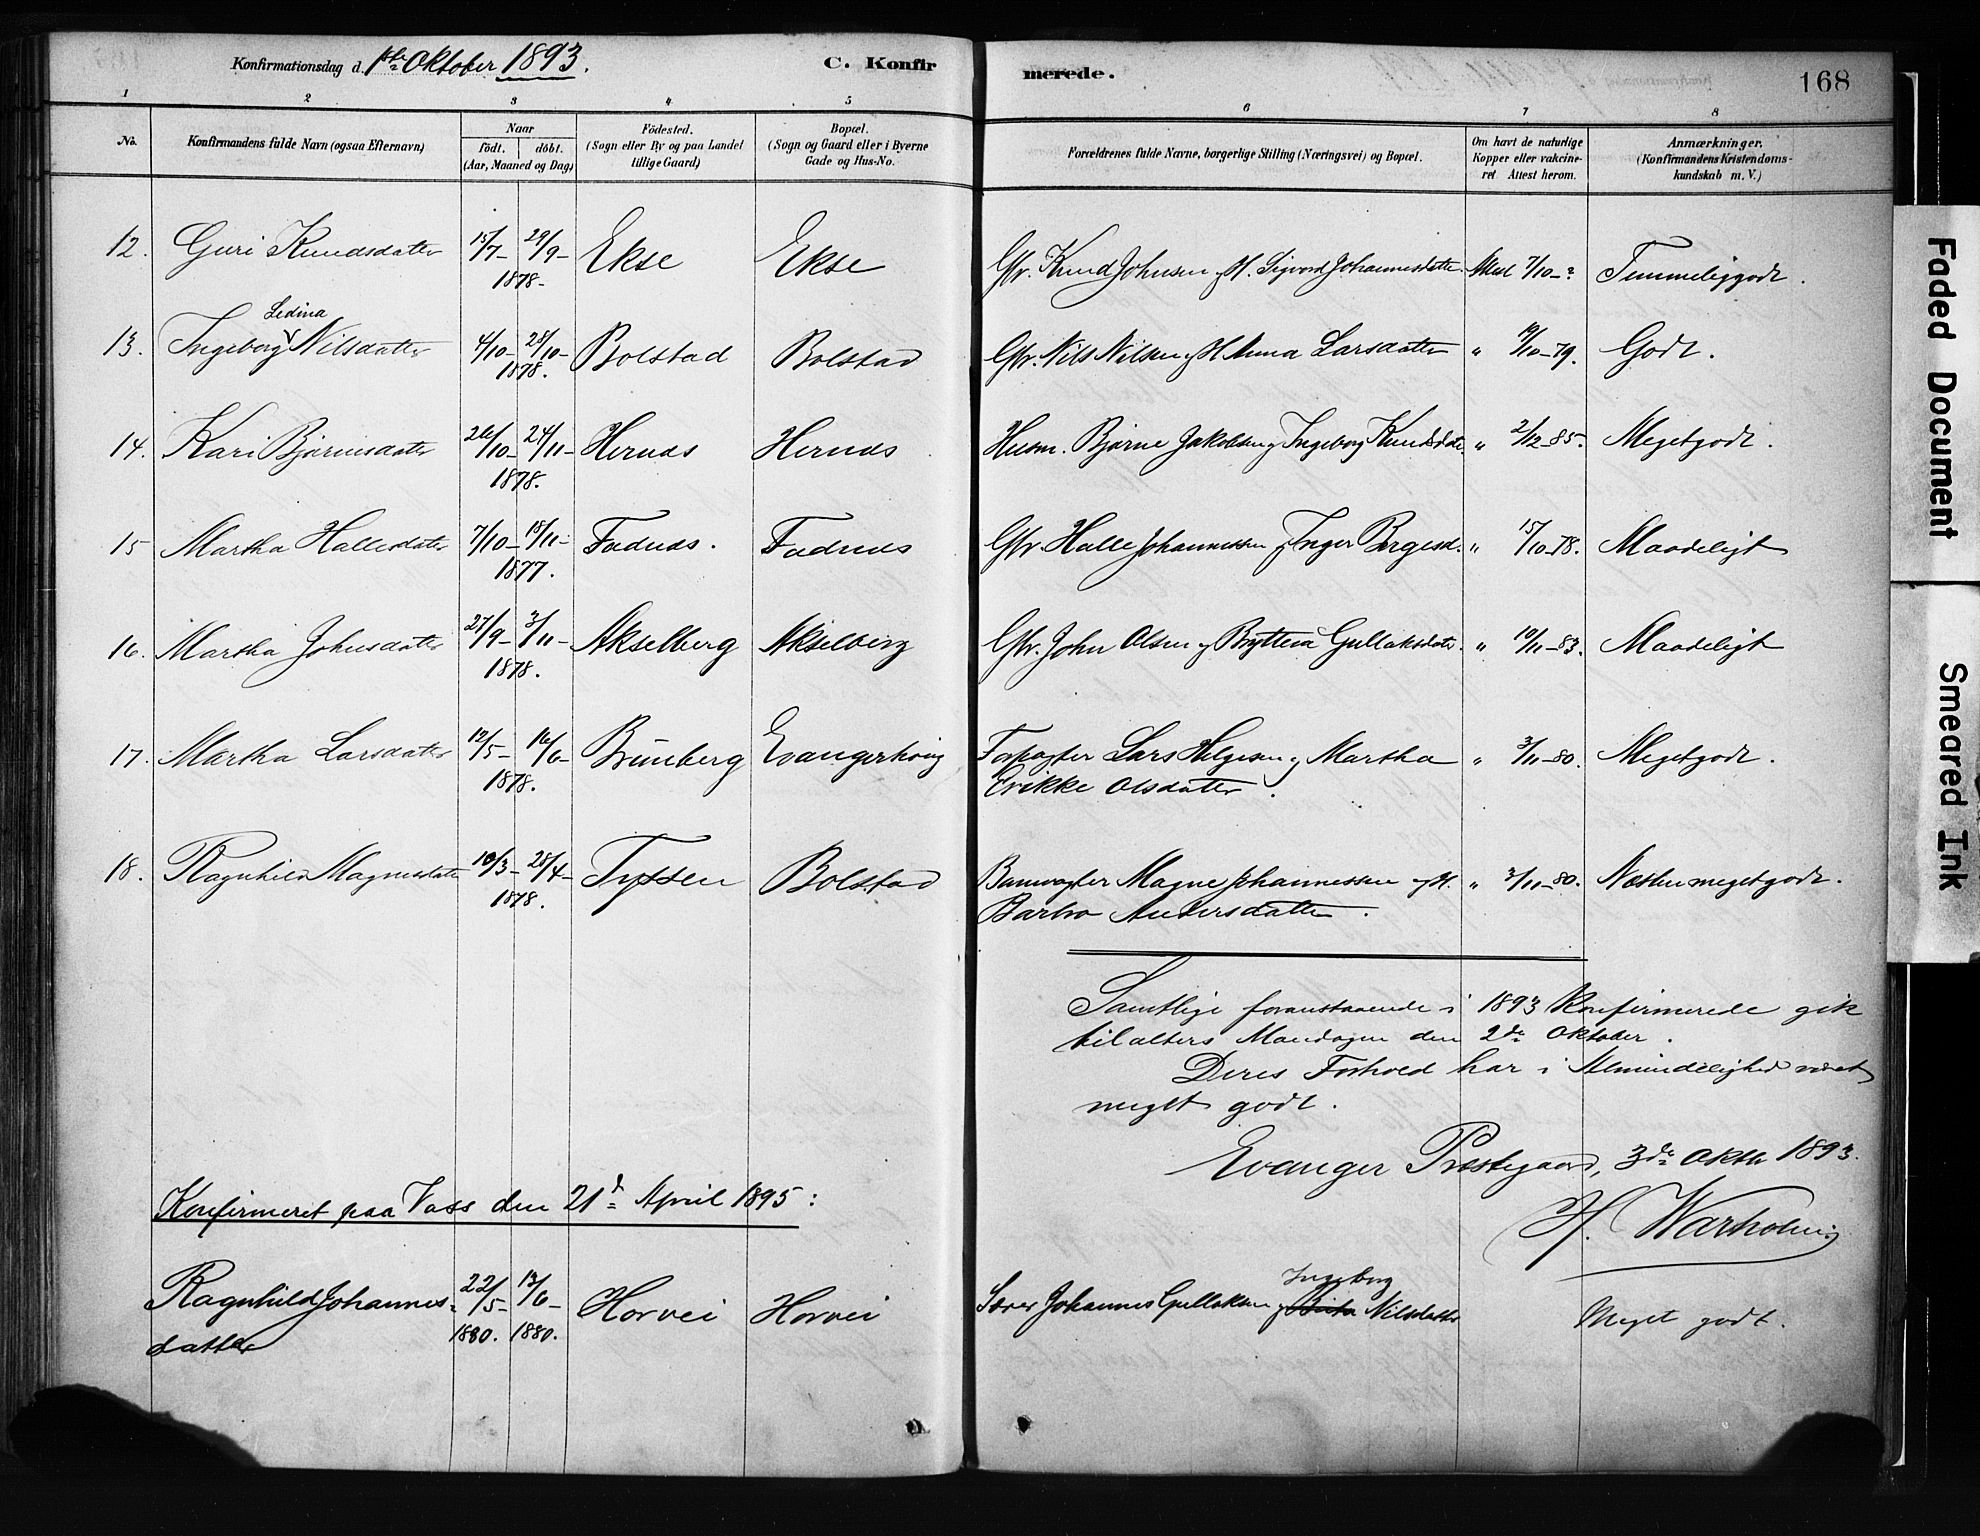 Konfirmationsdag d. 1ste Oktober 1893.
C. Konfirmerede.
168
1 2 3 4 5 6 7 8
No.
Konfirmandens fulde Navn (ogsaa Efternavn)
Naar
födt. döbt.
(Aar, Maaned og Dag)
Födested.
(Sogn eller By og paa Landet
tillige Gaard)
Bopæl.
(Sogn og Gaard eller i Byerne
Gade og Hus-No.
Forældrenes fulde Navne, borgerlige Stilling (Næringsvei) og Bopæl.
Om havt de naturlige
Kopper eller vakcine-
ret Attest herom.
Anmærkninger.
(Konfirmandens Kristendoms-
kundskab m. V.)
12. Guri Knudsdatter 15/7- 29/9- 1878- Ekse Ekse Gbr. Knud Johnsen og H. Sigvord Johannesdatter. Med 7/10-? Temmelig godt.
Sedina
13. Ingeborg Nilsdatter 4/10- 28/10- 1878. Bolstad Bolstad Gbr. Nils Nilsen og H Anna Larsdatter " 19/10-79. Godt.
14. Kari Bjørnesdatter 26/10- 24/11- 1878. Hernes Hernes Husm. Bjørne Jakobsen og Ingeborg Knudsdatr. " 2/12-85. Meget godt.
15 Martha Hallesdatter 7/10- 18/11- 1877. Fadnes. Fadnes Gbr. Halle Johannessen og Inger Børgesd. " 15/10-78. Maadeligt
16. Martha Johnsdatter 27/9- 3/11- 1878. Akselberg Akselberg Gbr. John Olsen og Brytteva Gullaksdatr. " 10/11-83. Maadeligt
17. Martha Larsdatter 12/5- 16/6- 1878. Brunberg Evangerhovig Forpagter Lars Helgesen og Martha " 3/11-80. Meget godt.
Erikke Olsdatter.
18. Ragnhild Magnesdatter 10/3- 28/4- 1878. Tyssen Bolstad Banevogter Magne Johannessen og H. " 3/11-80. Næsten meget godt.
Barbro Andersdatter.
Samtlige foranstaaende i 1893 Konfirmerede gik
til alters Mandagen den 2de Oktober.
Deres Forhold har i Almindelighed været
meget godt.
Evanger Præstegaard, 3de Oktbr 1893.
H. Warholm
Konfirmeret paa Voss den 21d April 1895:
Ingeborg
Ragnhild Johannes- 22/5- 13/6- Horvei Horvei Johannes Gullaksen og Brita Nilsdatter Meget godt.
datter 1880. 1880.
Faded Document
Smeared Ink